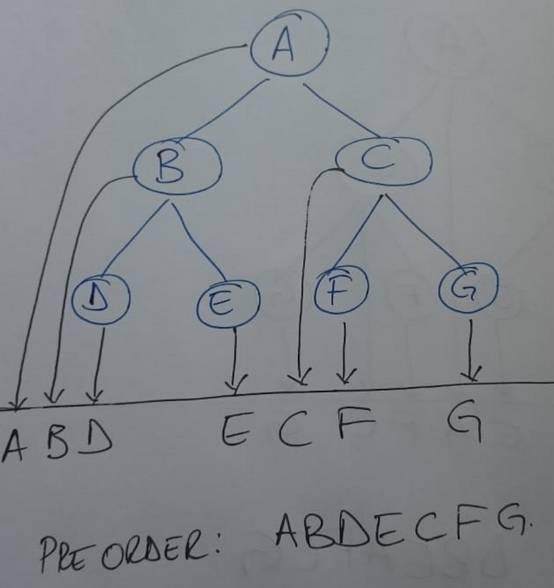 A
B C
D E F G
A B D E C F G
PRE ORDER: ABDECFG.